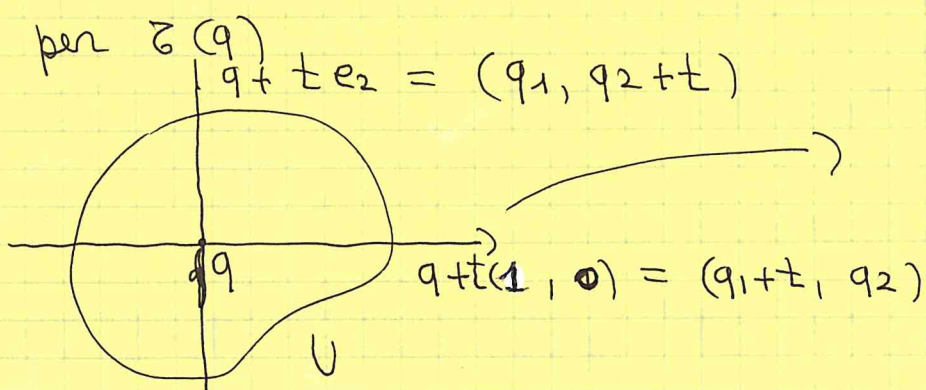 per τ(q)
q + t e2 = (q1, q2+t)
q
q+t(1, 0) = (q1+t, q2)
U